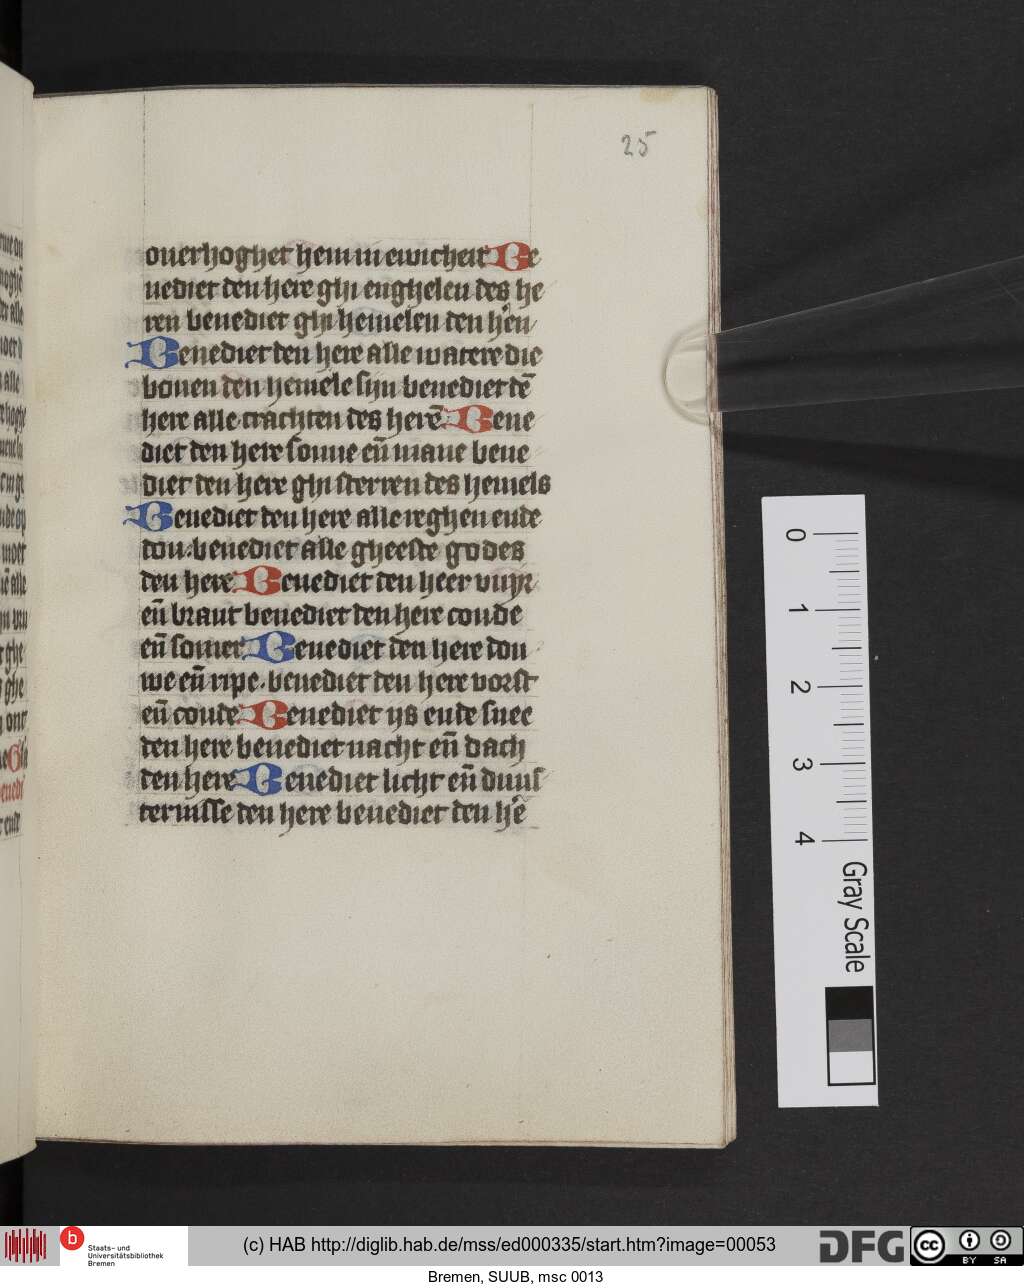 25
ouerhoghet hem in ewicheit Be
nediet den here ghi enghelen des he
ren benediet ghi hemelen den hēn
Benediet den here alle watere die
bouen den hemele sijn benediet dē
here alle crachten des herē Bene
diet den here sonne eñ mane bene
diet den here ghi sterren des hemels
Benediet den here alle reghen ende
dou. benediet alle gheeste godes
den here Benediet den heer vuyr
eñ brant benediet den here coude
eñ somer Benediet den here dou
we eñ ripe. benediet den here vorst
eñ coude Benediet ijs ende snee
den here benediet nacht eñ dach
den here Benediet licht eñ duus
ternisse den here benediet den hē
0
1
2
3
4
Gray Scale
b
Staats- und
Universitätsbibliothek
Bremen
(c) HAB http://diglib.hab.de/mss/ed000335/start.htm?image=00053
DFG
cc
BY SA
Bremen, SUUB, msc 0013